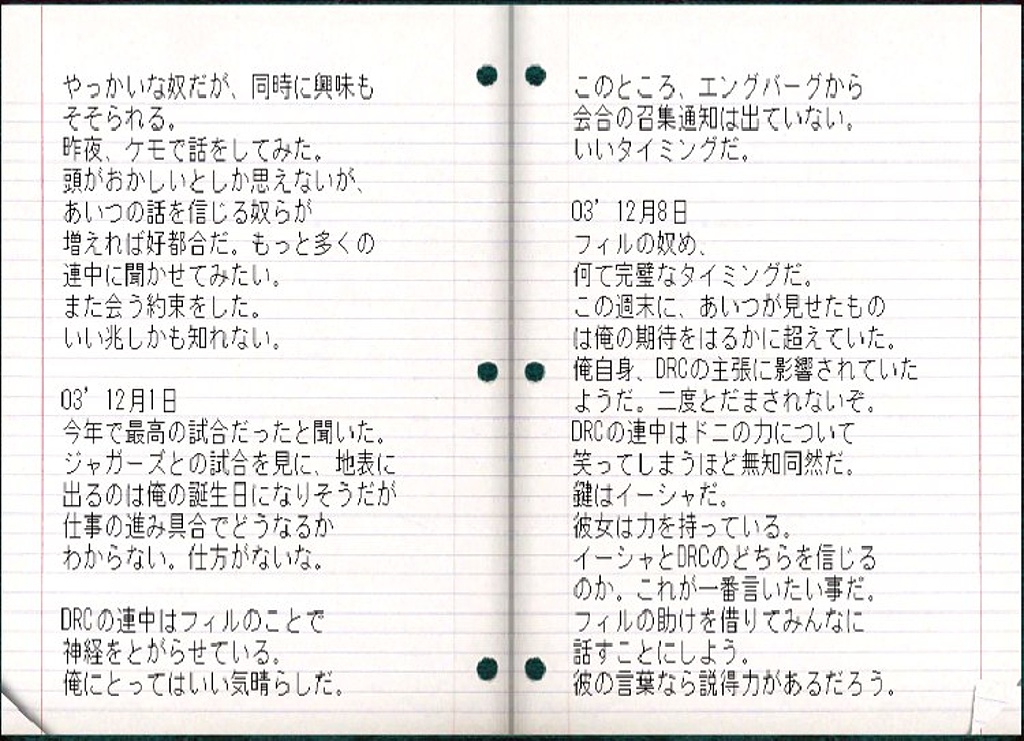 やっかいな奴だが、同時に興味も
そそられる。
昨夜、ケモで話をしてみた。
頭がおかしいとしか思えないが、
あいつの話を信じる奴らが
増えれば好都合だ。もっと多くの
連中に聞かせてみたい。
また会う約束をした。
いい兆しかも知れない。
03’12月1日
今年で最高の試合だったと聞いた。
ジャガーズとの試合を見に、地表に
出るのは俺の誕生日になりそうだが
仕事の進み具合でどうなるか
わからない。仕方がないな。
DRCの連中はフィルのことで
神経をとがらせている。
俺にとってはいい気晴らしだ。
このところ、エングバーグから
会合の召集通知は出ていない。
いいタイミングだ。
03’12月8日
フィルの奴め、
何て完璧なタイミングだ。
この週末に、あいつが見せたもの
は俺の期待をはるかに超えていた。
俺自身、DRCの主張に影響されていた
ようだ。二度とだまされないぞ。
DRCの連中はドニの力について
笑ってしまうほど無知同然だ。
鍵はイーシャだ。
彼女は力を持っている。
イーシャとDRCのどちらを信じる
のか。これが一番言いたい事だ。
フィルの助けを借りてみんなに
話すことにしよう。
彼の言葉なら説得力があるだろう。